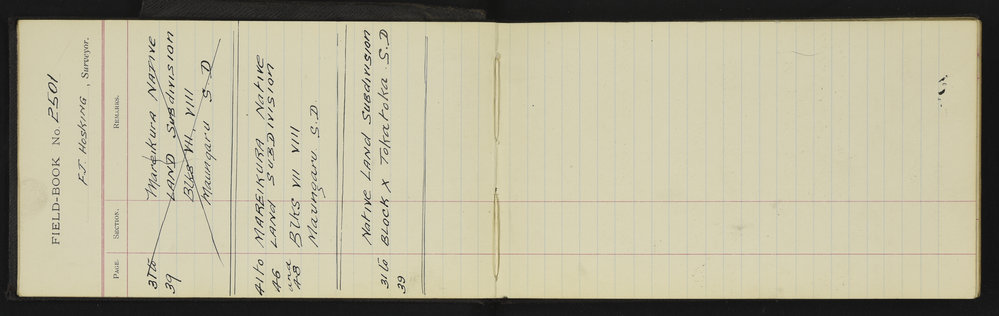 FIELD-BOOK No. 2501
F.J. Hosking, Surveyor.
PAGE. SECTION. REMARKS.
31 to Mareikura Native
39 LAND Subdivision
Blks VII, VIII
Maungaru S.D
41 to MAREIKURA Native
46 LAND SUBDIVISION
and
48 Blks VII VIII
Maungaru S.D.
Native LAND Subdivision
31 to BLOCK X Tokatoka S.D
39